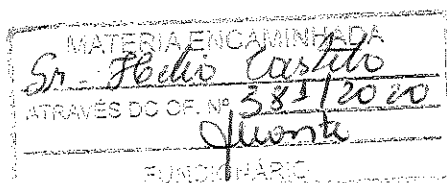 MATERIA ENCAMINHADA
Sr. Helio Castilo
ATRAVÉS DO OF. Nº 381/2020
FUNCIONÁRIO